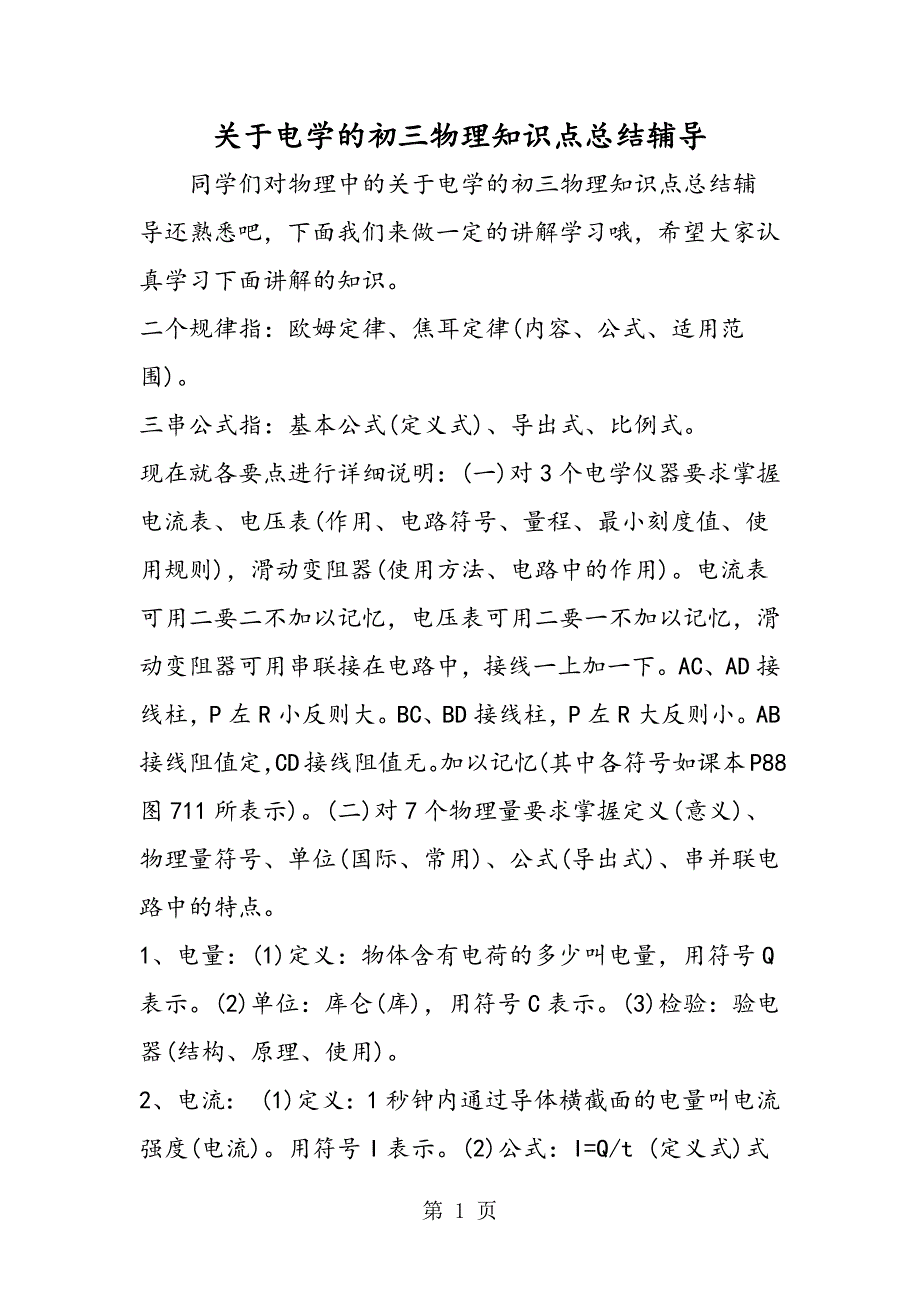 关于电学的初三物理知识点总结辅导
同学们对物理中的关于电学的初三物理知识点总结辅
导还熟悉吧，下面我们来做一定的讲解学习哦，希望大家认
真学习下面讲解的知识。
二个规律指：欧姆定律、焦耳定律(内容、公式、适用范
围)。
三串公式指：基本公式(定义式)、导出式、比例式。
现在就各要点进行详细说明：(一)对 3 个电学仪器要求掌握
电流表、电压表(作用、电路符号、量程、最小刻度值、使
用规则)，滑动变阻器(使用方法、电路中的作用)。电流表
可用二要二不加以记忆，电压表可用二要一不加以记忆，滑
动变阻器可用串联接在电路中，接线一上加一下。AC、AD 接
线柱，P 左 R 小反则大。BC、BD 接线柱，P 左 R 大反则小。AB
接线阻值定，CD 接线阻值无。加以记忆(其中各符号如课本 P88
图 711 所表示)。(二)对 7 个物理量要求掌握定义(意义)、
物理量符号、单位(国际、常用)、公式(导出式)、串并联电
路中的特点。
1、电量：(1)定义：物体含有电荷的多少叫电量，用符号 Q
表示。(2)单位：库仑(库)，用符号 C 表示。(3)检验：验电
器(结构、原理、使用)。
2、电流： (1)定义：1 秒钟内通过导体横截面的电量叫电流
强度(电流)。用符号 I 表示。(2)公式：I=Q/t (定义式)式
第 1 页